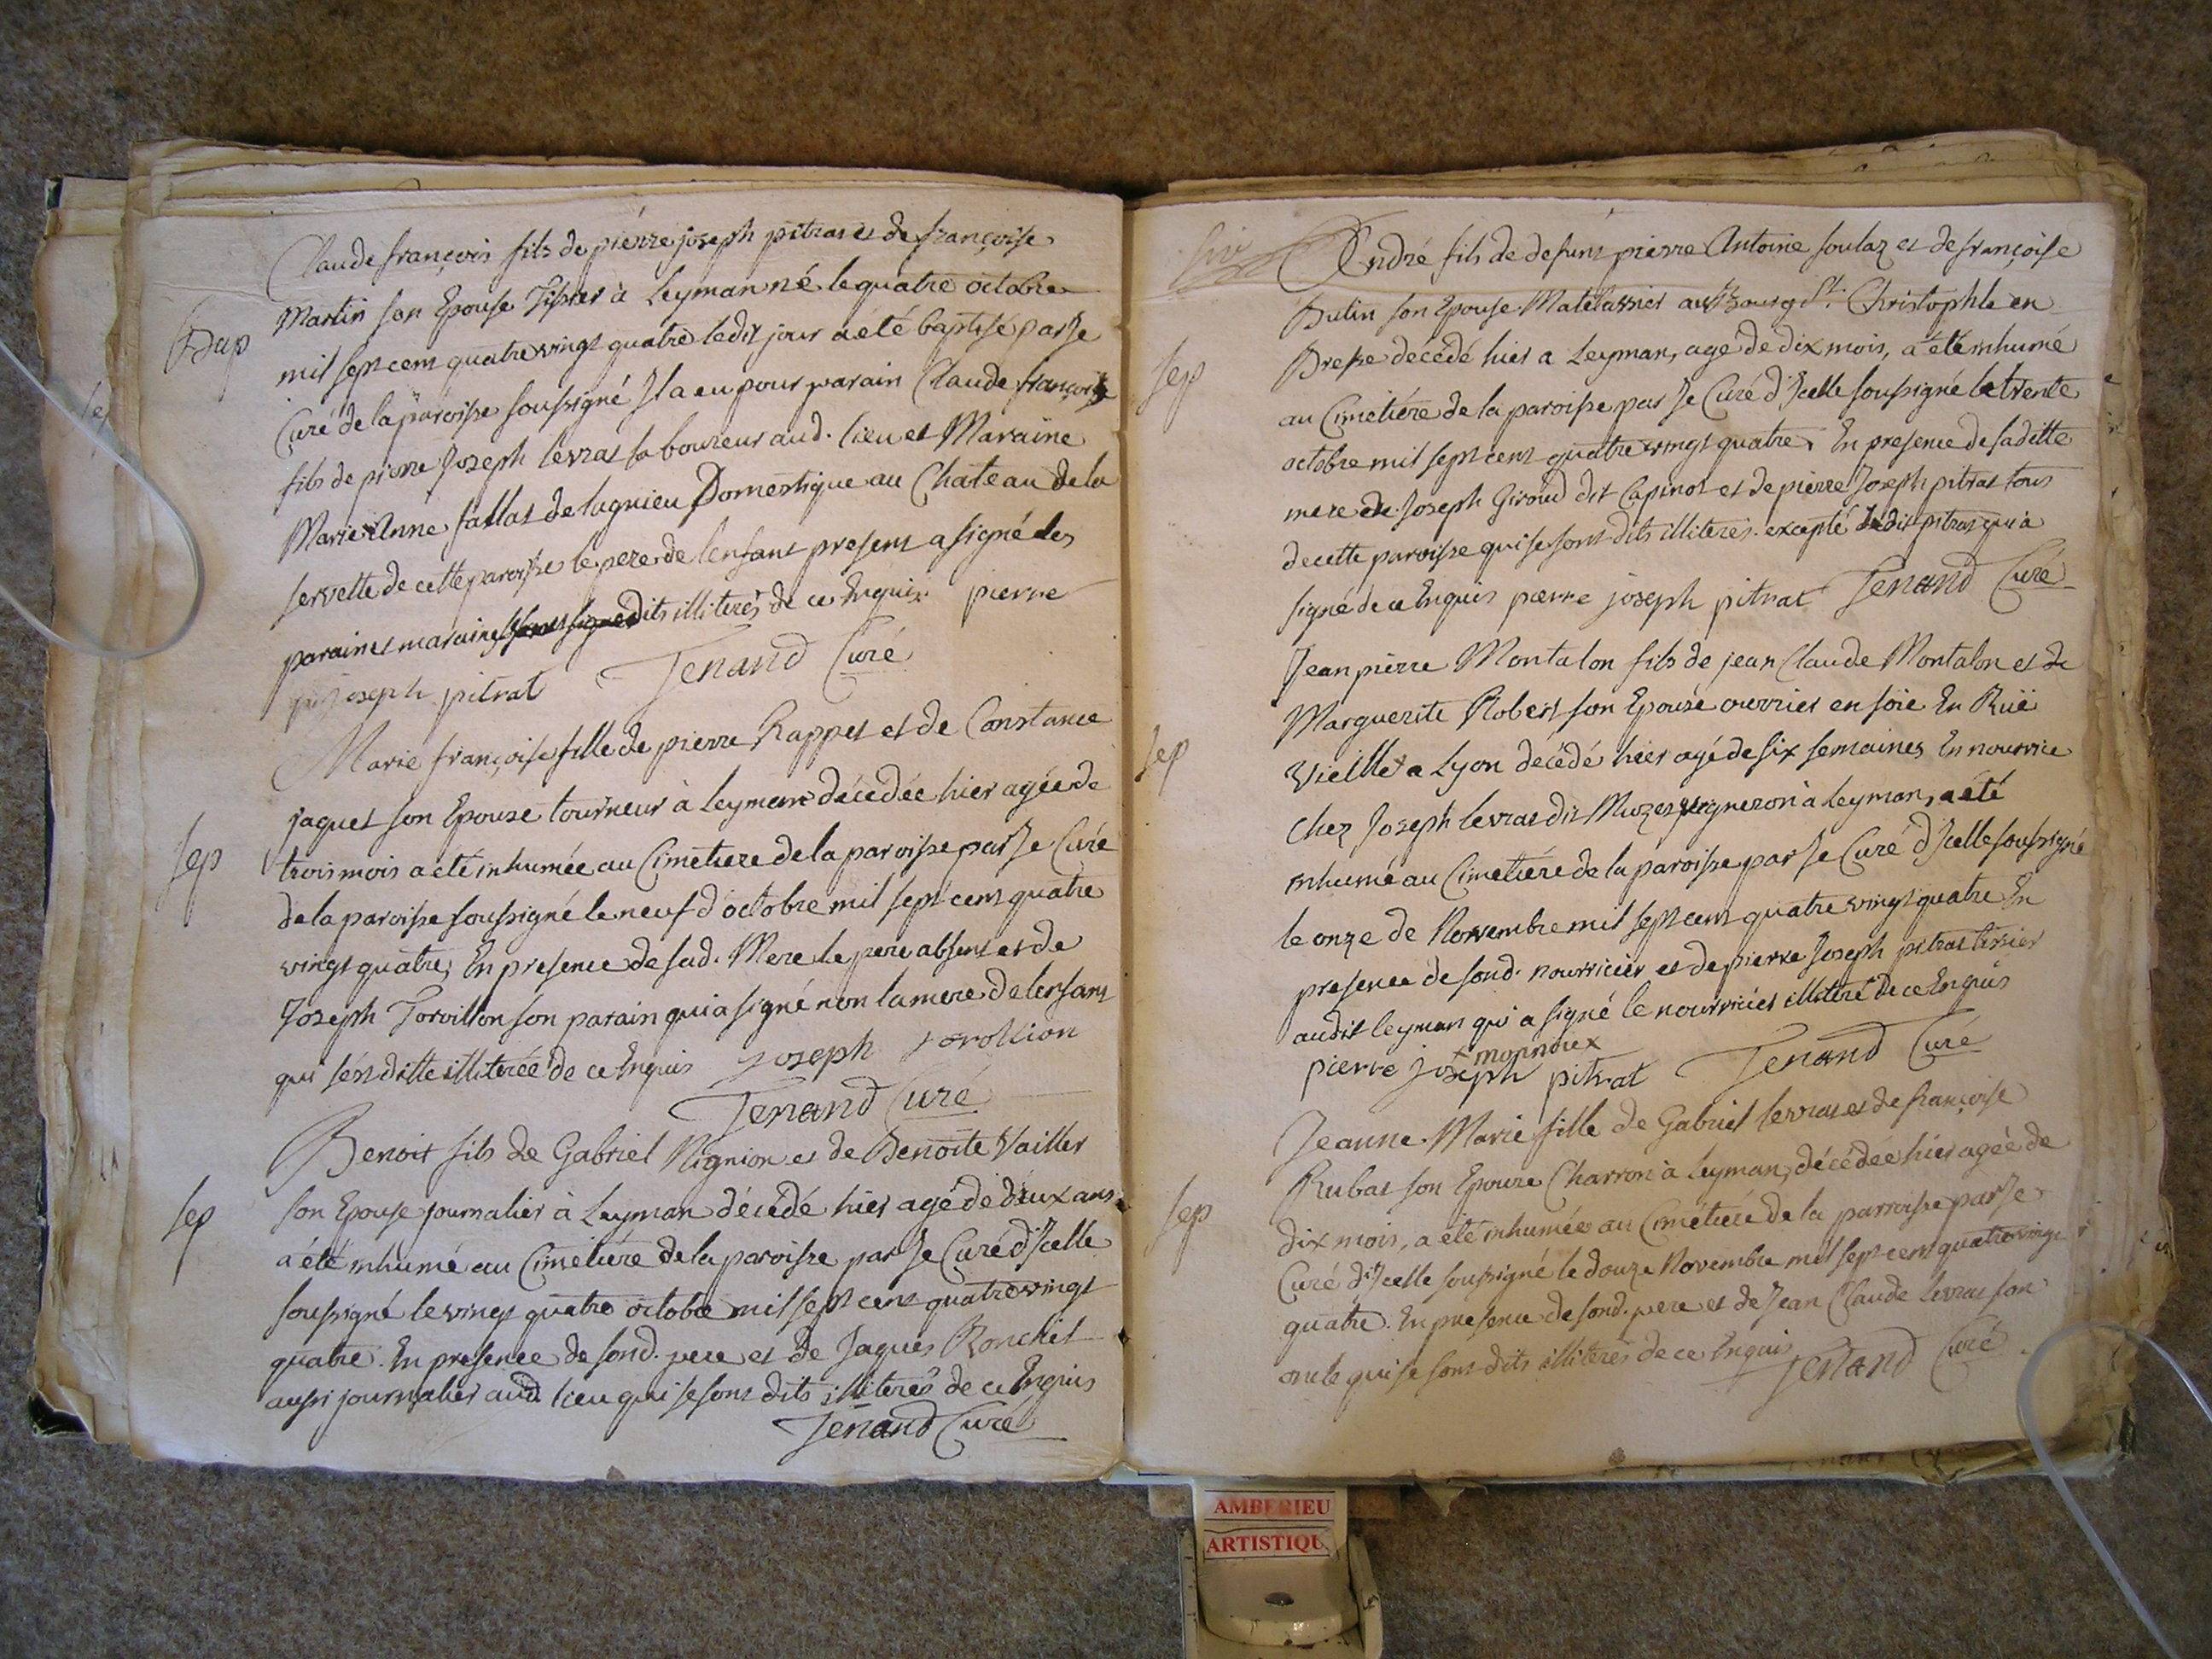 Claude françois fils de pierre joseph pitrat et de françoise
Bap
Martin son Epouse Tissier à Leyman né le quatre octobre
mil sept cent quatre vingt quatre ledit jour a été baptisé par Je
Curé de la paroisse soussigné Il a eu pour parain Claude françois
fils de pierre Joseph levrat laboureur aud. lieu et Maraine
Marie Anne fallat de lagnieu Domestique au Chateau de la
servette de cette paroisse le pere de lenfant present a signé les
parain et maraine dits illiterés de ce Enquis pierre
joseph pitrat Tenand Curé
Marie françoise fille de pierre Rappet et de Constance
jaquet son Epouse tourneur à Leyman décédée hier agée de
Sep
trois mois a été inhumée au Cimetiere de la paroisse par Je Curé
de la paroisse soussigné le neuf d'octobre mil sept cent quatre
vingt quatre, En presence de sad. Mere le pere absent et de
Joseph Torvillon son parain qui a signé non la mere de lenfant
qui sest ditte illiterée de ce Enquis Joseph
Tenand Curé
Benoit fils de Gabriel Nignion et de Benoite Vaillet
Sep
son Epouse journalier à Leyman décédé hier agé de deux ans
a été inhumé au Cimetiére de la paroisse par Je Curé d'Icelle
soussigné le vingt quatre octobre mil sept cent quatre vingt
quatre. En presence de sond. pere et de Jaques Ronchet
aussi journalier aud. lieu qui se sont dits illiterés de ce Enquis
Tenand Curé
André fils de defunt pierre Antoine soulaz et de françoise
Bulin son Epouse Matelassier au Bourg St. Christophle en
Sep
Bresse décédé hier a Leyman, age de dix mois, a été inhumé
au Cimetiére de la paroisse par Je Curé d'Icelle soussigné le trente
octobre mil sept cent quatre vingt quatre, En presence de saditte
mere de Joseph Giroud dit Capinot et de pierre Joseph pitrat tous
de cette paroisse qui se sont dits illiterés. excepté ledit pitrat qui a
signé de ce Enquis pierre joseph pitrat Tenand Curé
Jean pierre Montalon fils de jean Claude Montalon et de
Marguerite Robert son Epouse ouvrier en soie En Ruë
Sep
Vieille a Lyon décédé hier agé de six semaines En nourrice
chez Joseph levrat dit Muzet vigneron à Leyman, a été
inhumé au Cimetiére de la paroisse par Je Curé d'Icelle soussigné
le onze de Novembre mil sept cent quatre vingt quatre En
presence de sond. nourricier et de pierre Joseph pitrat tissier
audit leyman qui a signé le nourricier illiteré de ce Enquis
pierre joseph pitrat Tenand Curé
Jeanne Marie fille de Gabriel levrat et de françoise
Rubat son Epouse Charron à Leyman, décédée hier agée de
Sep
dix mois, a été inhumée au Cimétiére de la parroisse par Je
Curé d'Icelle soussigné le douze Novembre mil sept cent quatre vingt
quatre. En presence de sond. pere et de Jean Claude levrat son
oncle qui se sont dits illiterés de ce Enquis Tenand Curé
AMBERIEU
ARTISTIQU